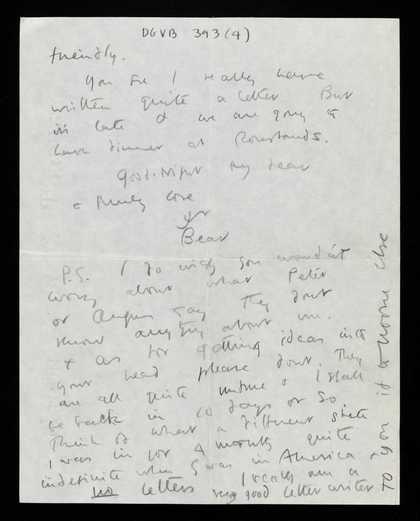 DGVB 393 (4)
friendly.
You see I really have
written quite a letter But
its late & we are going to
have dinner at
Good-night my dear
& much love
yr
Bear
P.S. I do wish you wouldn't
worry about what Peter
or Angus say They dont
know anything about me.
& as for getting ideas into
your head please dont. They
are all quite untrue & I shall
be back in 10 days or so.
Think of what a different state
I was in for 4 months quite
indefinite when I was in America &
no letters I really am a
very good letter writer
to you if to noone else